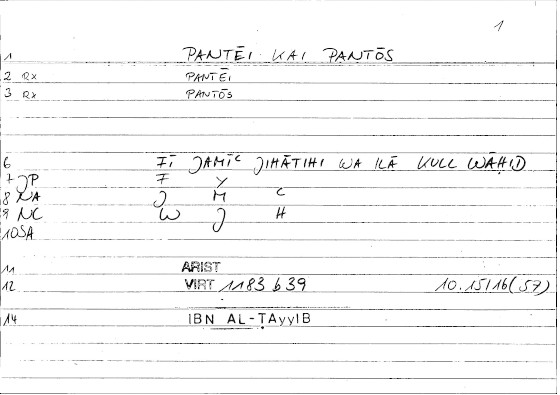 1
1 PANTĒI KAI PANTŌS
2 RX PANTĒI
3 RX PANTŌS
6 FĪ JAMĪC JIHĀTIHI WA ILĀ KULL WĀḤID
7 JP F Y
8 NA J M C
9 NC W J H
10 SA
11 ARIST
12 VIRT 1183 b 39 10.15/16(57)
14 IBN AL-ṬAyyIB